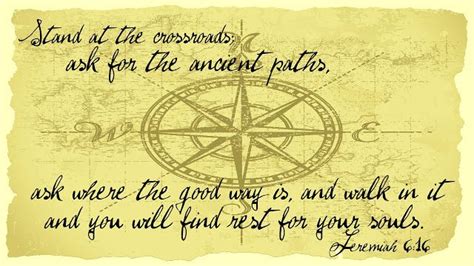 Stand at the crossroads;
ask for the ancient paths,
W E
ask where the good way is, and walk in it
and you will find rest for your souls.
Jeremiah 6:16